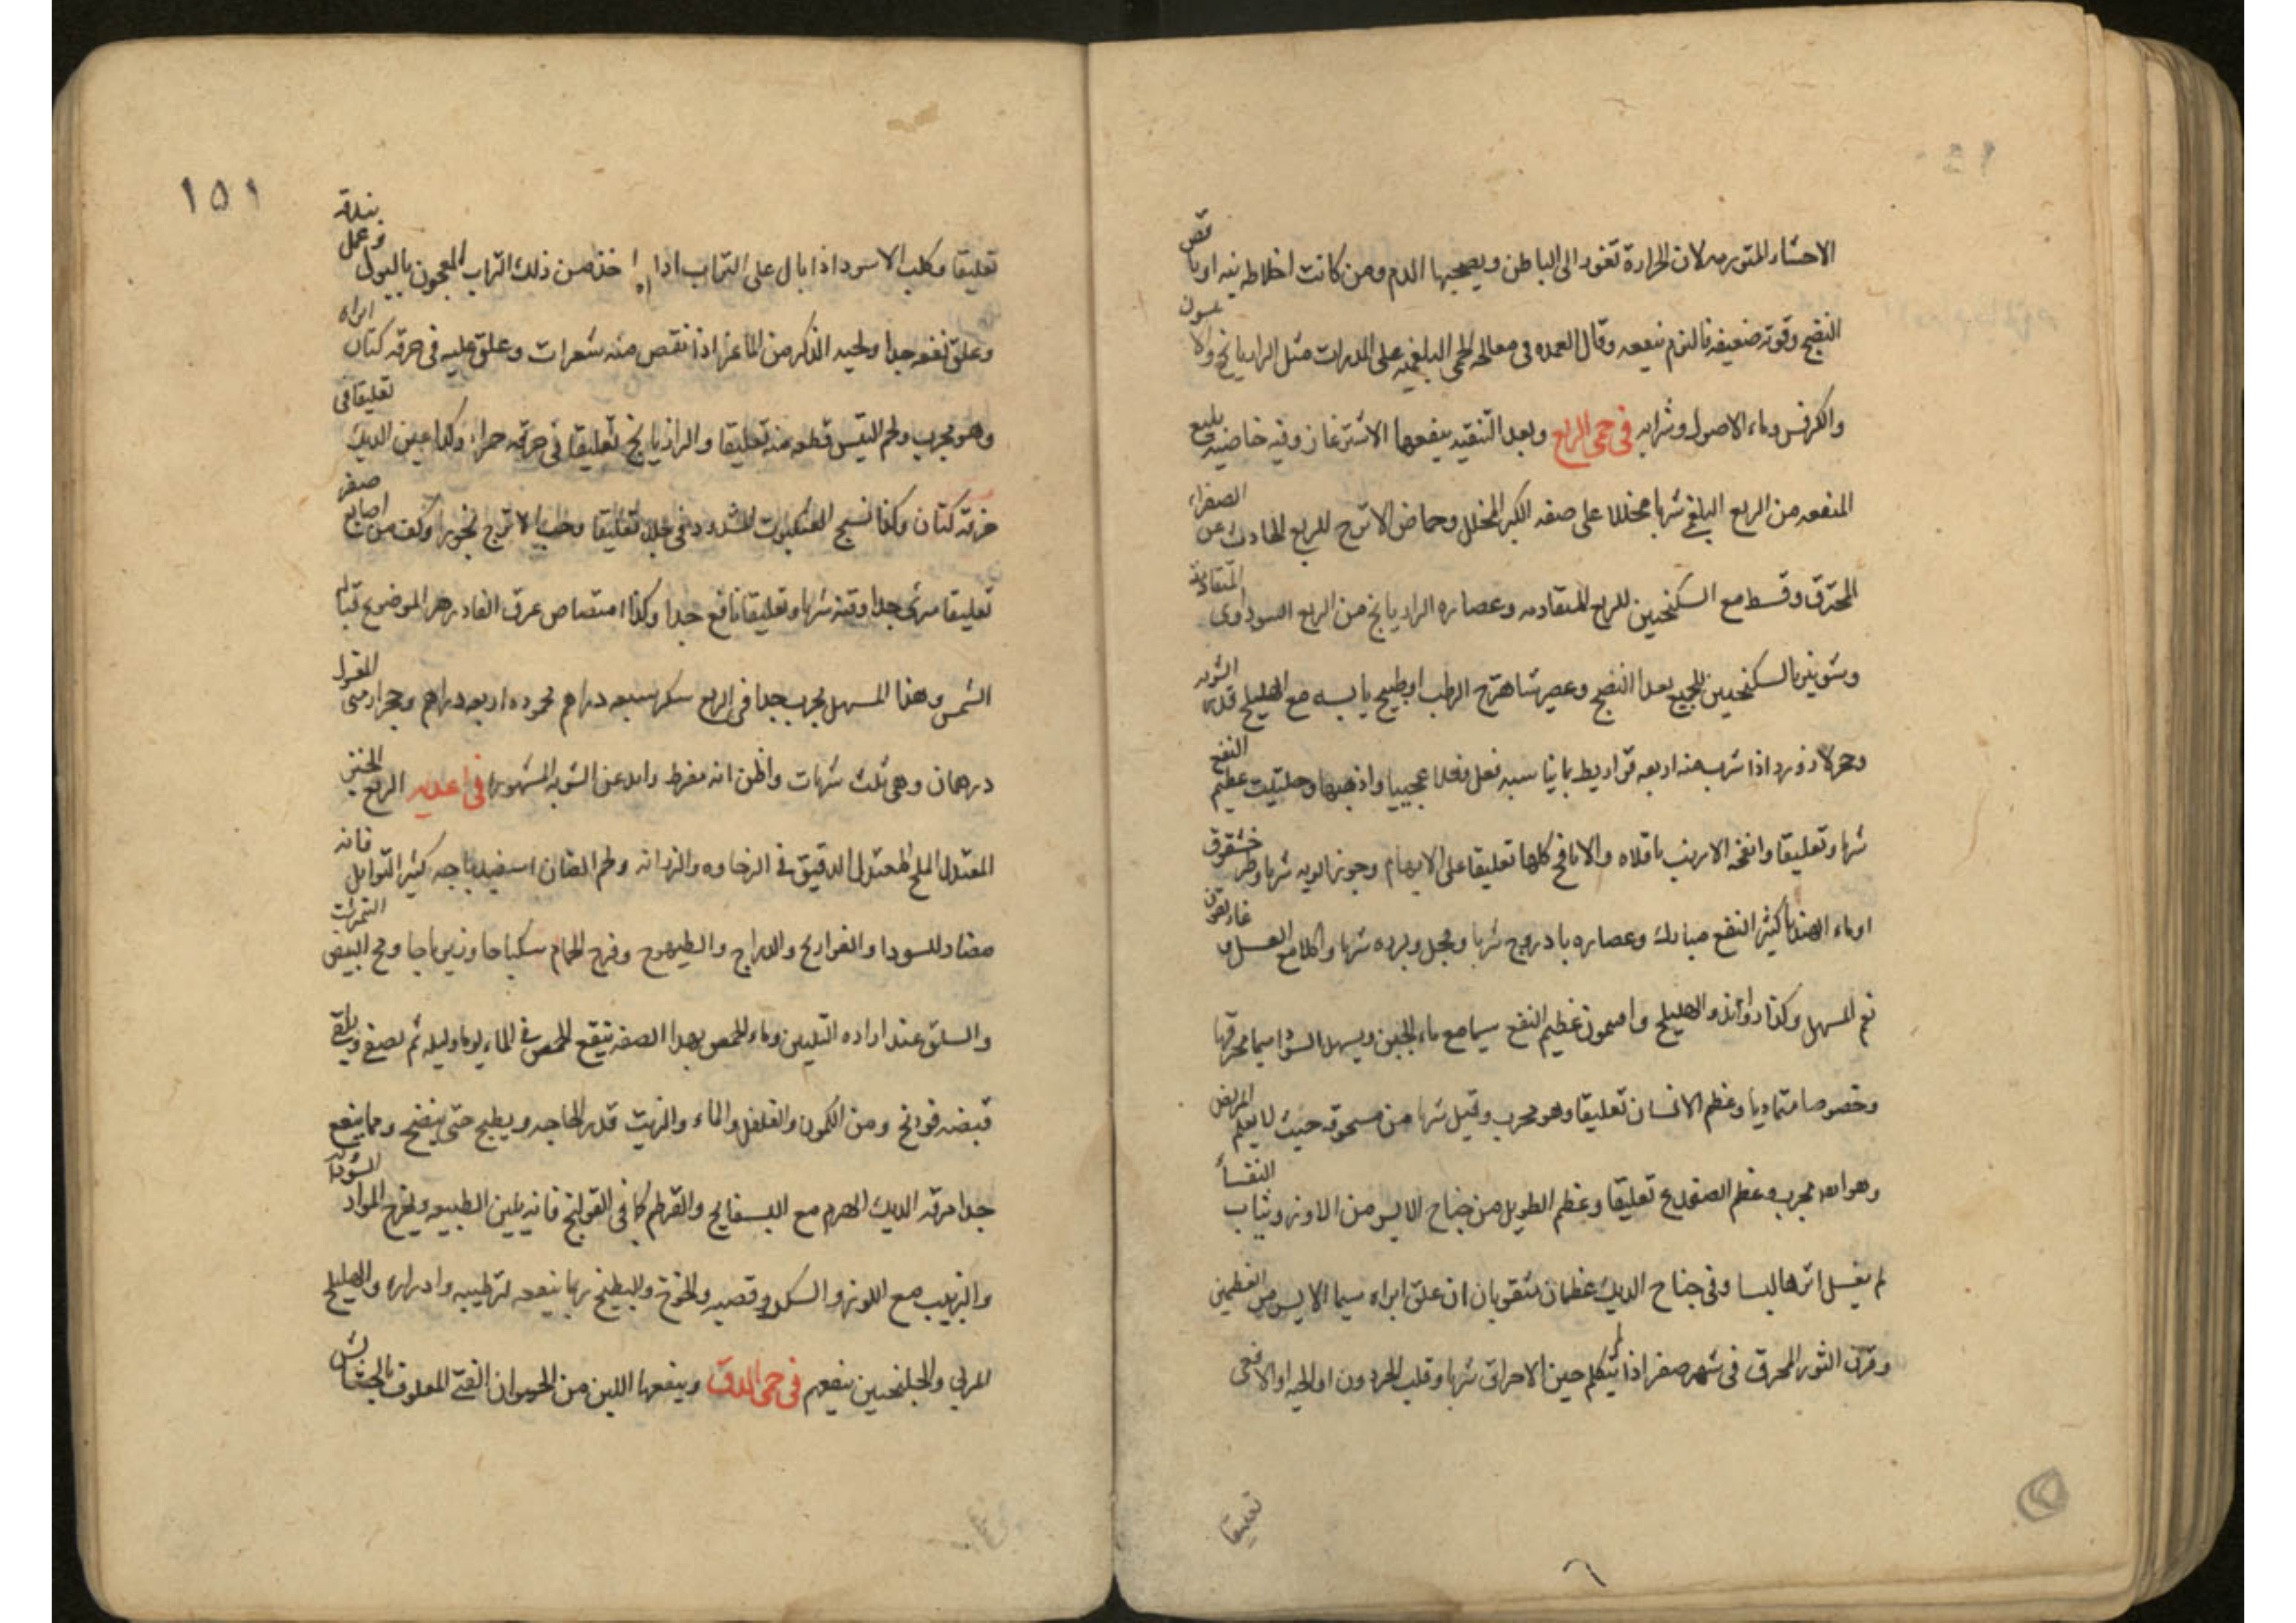 الاحشاء المتورمه لان الحرارة تغور الى الباطن ويصحبها الدم ومن كانت اخلاطه نيه او
النضج وقوته ضعيفه فالنوم ينفعه وقال العمده فى معالجه الحمى البلغميه على المدرات مثل الرازيانج والا
والكرفس وماء الاصول وشرابه فى حمى الربع وبعد التنقيه ينفعها الاشترغاز وفيه خاصيه بليع
المنفعه من الربع البلغمى شربا مخللا على صفه الكبر المخلل وحماض الاترج للربع الحادث عن الصفراء
المحترق وقسط مع السكنجبين للربع المتقادمه وعصاره الرازيانج من الربع السوداوى المتقادمة
وشونيز بالسكنجبين للجميع بعد النضج وعصير شاهترج الرطب او طبيخ يابسه مع الهليلج قدر الشربه
وحجر لازورد اذا شرب منه اربعه قراريط بما يناسبه فعل فعلا عجيبا واذهبها وحلتيت عظيم النفع
شربا وتعليقا وانفحة الارنب باقلاه والانافح كلها تعليقا على الابهام وجوز البويه شربا
او ماء الهندبا كثير النفع مبارك وعصاره بادروج شربا وفجل وبرده شربا واكلا مع العسل غاريقون
نعم المسهل وكذا راوند والهليلج وافيمون عظيم النفع سيما مع ماء الجبن ويسهل السودا سيما محرقها
وخصوصا متماديا وعظم الانسان تعليقا وهو مجرب وقيل شربا من مسحوقه حيث لا يعلم المريض
وهو ايضا مجرب وعظم الضفدع تعليقا وعظم الطويل من جناح الايسر من الاوز وثياب النفسا
لم يغسل اثرها لبسا وفى جناح الديك عظمان مثقوبان ان علق ابراه سيما الايسر من العظمين
وقرن الثور المحرق فى شهر صفر اذا لم يتكلم حين الاحراق شربا وقلب الحردون او الحيه او الافعى
تعليقا
١٥١
تعليقا وكلب الاسود اذا بال على التراب اذا خذ من ذلك التراب المعجون بالبول وعمل بندقه
وعلق نفعه جدا ولحيه الذكر من الماعز اذا نقص منه شعرات وعلق عليه فى خرقه كتان ابراه
وهو مجرب ولحم التيس قطعه منه تعليقا والرازيانج تعليقا فى خرقه حمراء وكذا عين الديك تعليقا فى
خرقه كتان وكذا نسج العنكبوت المشدود فى جلد تعليقا وحب الاترج بخورا وكف مريم اصابع صفر
تعليقا مبرئ جدا وقنه شربا وتعليقا نافع جدا وكذا امتصاص عرق الفادزهر الموضوع قباله
الشمس وهذا المسهل مجرب جدا فى الربع سكر سبعه دراهم محموده اربعه دراهم وحجر ارمنى المغسول
درهمان وهى ثلث شربات واظن انه مفرط وابعد عن الشربه المشهوره فى اغذيه الربع الخبز
المعتدل الملح المعتدل الدقيق فى الرخاوه والرزانه ولحم الضان اسفيدباجه كثير التوابل فانه
مضاد للسودا والفراريج والدراج والطيهوج وفرخ الحمام سكباجا وزيرباجا ومح البيض النمرشت
والسلق عند اراده التليين وماء الحمص بهذا الصفه ينقع الحمص فى الماء يوما وليله ثم يصفى ويلقى
قبضه فودنج ومن الكمون والفلفل والماء والزيت قدر الحاجه ويطبخ حتى ينضج ومما ينفع
جدا مرقه الديك الهرم مع البسفايج والقرطم كما فى القولنج فانه يلين الطبيعه ويخرج المواد السوداويه
والزبيب مع اللوز والسكر وقصبه والخوخ والبطيخ ربما ينفعه لترطيبه وادراره والهليلج
المربي والجلنجبين ينفعهم فى حمى الدق وينفعها اللبن من الحيوان الفتى المعلوف بالحشائش